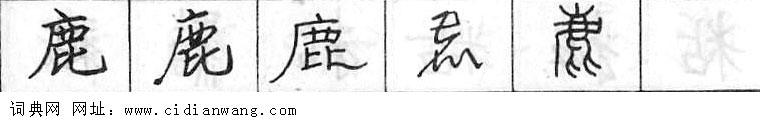 鹿 鹿 鹿 鹿 鹿
词典网 网址：www.cidianwang.com